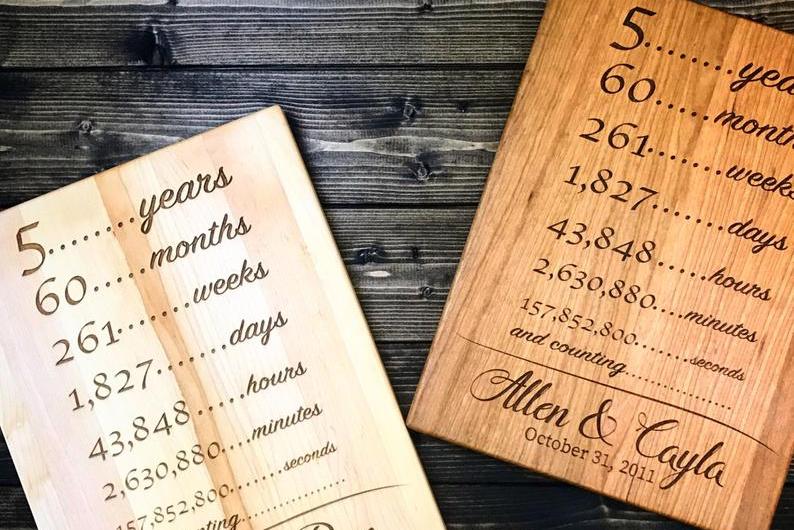 5........years
60.....months
261.......weeks
1,827.......days
43,848......hours
2,630,880....minutes
157,852,800........seconds
5.......
60.....
261.......
1,827.......days
43,848.....hours
2,630,880....minutes
157,852,800.......seconds
and counting...................
Allen & Cayla
October 31, 2011